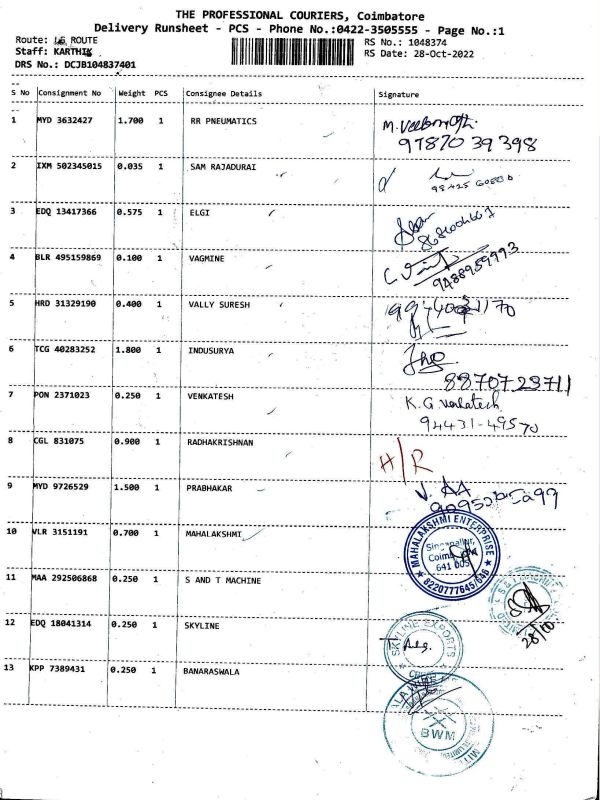 THE PROFESSIONAL COURIERS, Coimbatore
Delivery Runsheet - PCS - Phone No.:0422-3505555 - Page No.:1
Route: ROUTE
RS No.: 1048374
Staff: KARTHIK
RS Date: 28-Oct-2022
DRS No.: DCJB104837401
S No Consignment No Weight PCS Consignee Details Signature
1 MYD 3632427 1.700 1 RR PNEUMATICS
97870 39 398
2 IXM 502345015 0.035 1 SAM RAJADURAI
3 EDQ 13417366 0.575 1 ELGI
4 BLR 495159869 0.100 1 VAGMINE
9488959993
5 HRD 31329190 0.400 1 VALLY SURESH
6 TCG 40283252 1.800 1 INDUSURYA
88707 23711
7 PON 2371023 0.250 1 VENKATESH
K. G. Venkatesh
94431-49570
8 CGL 831075 0.900 1 RADHAKRISHNAN
H/R
9 MYD 9726529 1.500 1 PRABHAKAR
V. AA
10 VLR 3151191 0.700 1 MAHALAKSHMI
MAHALAKSHMI ENTERPRISE
Singanallur,
641 005
8220777645/646
11 MAA 292506868 0.250 1 S AND T MACHINE
28/10
12 EDQ 18041314 0.250 1 SKYLINE
SKYLINE EXPORTS
13 KPP 7389431 0.250 1 BANARASWALA
BWM